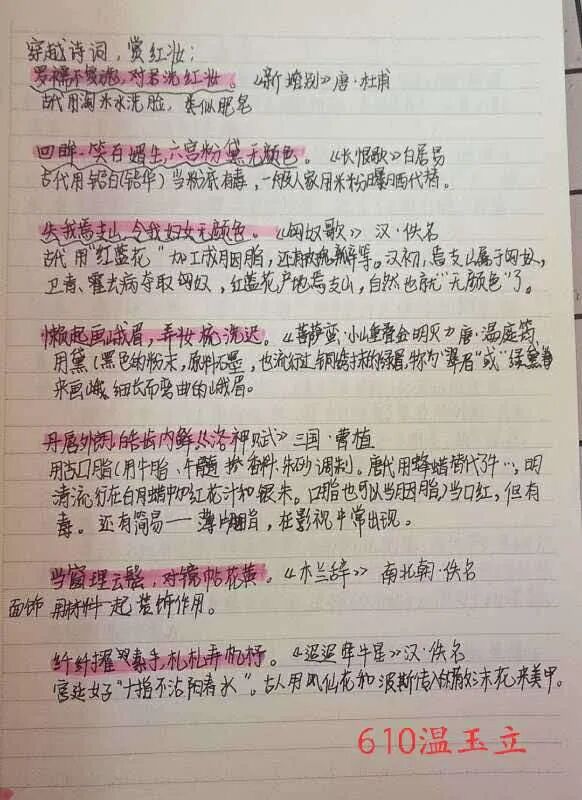 穿越诗词，赏红妆：
罗襦不复施，对君洗红妆。《新婚别》唐·杜甫
古代用淘米水洗脸，类似肥皂
回眸一笑百媚生，六宫粉黛无颜色。《长恨歌》白居易
古代用铅白(铅华)当粉底有毒，一般人家用米粉晒代替。
失我焉支山，令我妇女无颜色。《匈奴歌》汉·佚名
古代用"红蓝花"加工成胭脂，还有玫瑰等。汉初，焉支山属于匈奴，
卫青、霍去病夺取匈奴，红蓝花产地焉支山，自然也就"无颜色"了。
懒起画峨眉，弄妆梳洗迟。《菩萨蛮·小山重叠金明灭》唐·温庭筠
用黛(黑色的粉末，原料石墨，也流行过铜的绿眉，称为"翠眉"或"绿黛
来画峨，细长而弯曲的峨眉。
丹唇外朗，皓齿内鲜《洛神赋》三国·曹植
用古口脂(用牛脂、牛髓 香料、朱砂调制)。唐代用蜂蜡替代了牛…，明
清流行在白蜡中加红花汁和银朱。口脂也可以当胭脂)当口红，但有
毒。还有简易一一薄片胭脂，在影视中常出现。
当窗理云鬓，对镜帖花黄。《木兰辞》南北朝·佚名
面饰 用材料一起装饰作用。
纤纤擢双素手，札札弄机杼。《迢迢牵牛星》汉·佚名
宫廷女子"十指不沾阳春水"。古人用凤仙花和波斯传入的花来美甲。
610温玉立